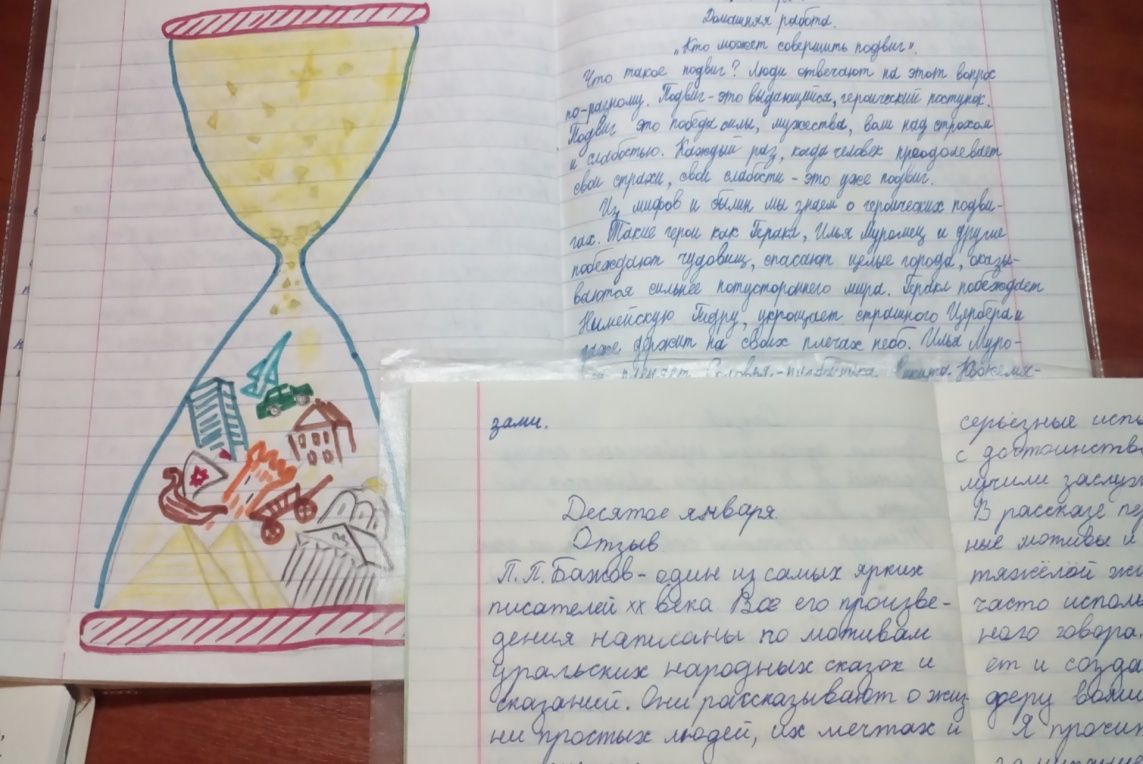 Домашняя работа.
„Кто может совершить подвиг".
Что такое подвиг? Люди отвечают на этот вопрос
по-разному. Подвиг - это выдающийся, героический поступок.
Подвиг это победа силы, мужества, воли над страхом
и слабостью. Каждый раз, когда человек преодолевает
свои страхи, свои слабости - это уже подвиг.
Из мифов и былин мы знаем о героических подви-
гах. Такие герои как Геракл, Илья Муромец и другие
побеждают чудовищ, спасают целые города, оказы-
ваются сильнее потустороннего мира. Геракл побеждает
Нимейскую Гидру, укрощает страшного Цербера и
даже держит на своих плечах небо. Илья Муро-
зами.
Десятое января
Отзыв
П.П.Бажов - один из самых ярких
писателей XX века Все его произве-
дения написаны по мотивам
уральских народных сказок и
сказаний. Они рассказывают о жиз-
ни простых людей, их мечтах и
серьёзные испы
с достоинство
лучили заслуж
В рассказе пе
ные мотивы и
тяжёлой жи
часто исполь
ного говора.
ет и созда
феру
Я прочит